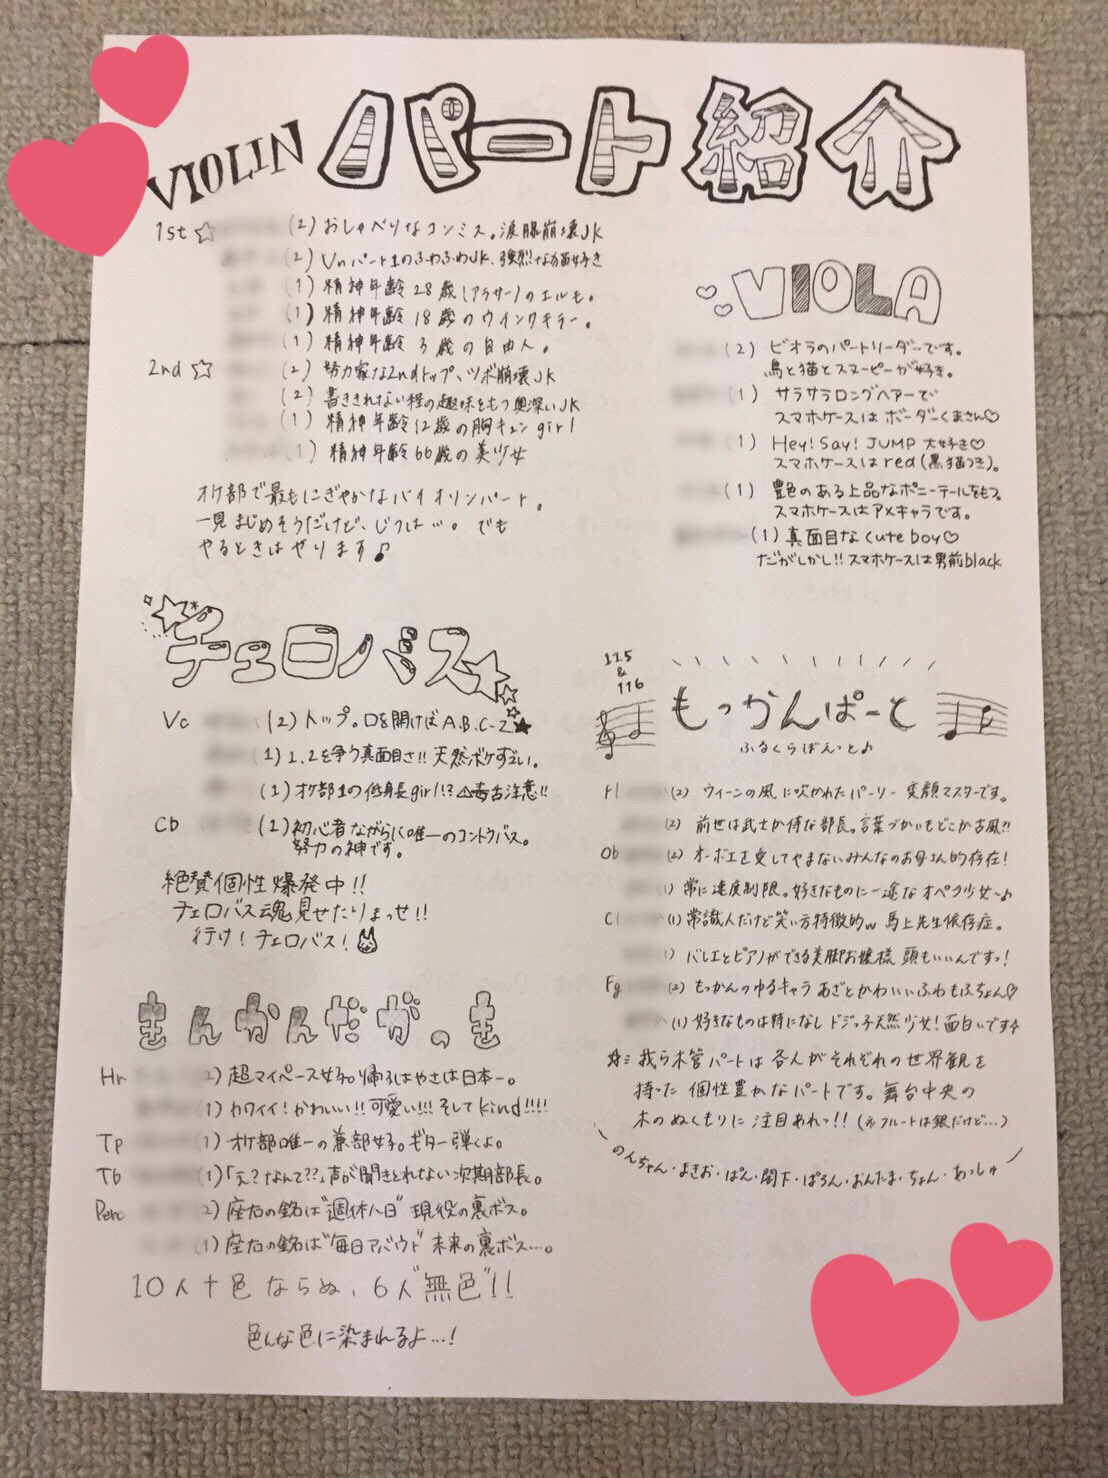 パート紹介
VIOLIN
1st☆ (2) おしゃべりなコンミス。涙腺崩壊JK
(2) Vnパート1のふわふわJK、強烈!な猫好き
(1) 精神年齢28歳(アラサー)のエルモ。
(1) 精神年齢18歳のウインクキラー。
(1) 精神年齢3歳の自由人。
2nd☆ (2) 努力家な2ndトップ、ツボ崩壊JK
(2) 書ききれない程の趣味をもつ奥深いJK
(1) 精神年齢12歳の胸キュンgirl
(1) 精神年齢66歳の美少女
オケ部で最もにぎやかなバイオリンパート。
一見まじめそうだけど、じつは…。でも
やるときはやります♪
♡♡VIOLA
(2) ビオラのパートリーダーです。
鳥と猫とスヌーピーが好き。
(1) サラサラロングヘアーで
スマホケースはボーダーくまさん♡
(1) Hey! Say! JUMP 大好き♡
スマホケースはred(黒猫つき)。
(1) 艶のある上品なポニーテールをもつ。
スマホケースはアメキャラです。
(1) 真面目なcute boy♡
だがしかし!!スマホケースは男前black
チェロバス
Vc (2) トップ。口を開けばA.B.C-Z★
(1) 1、2を争う真面目さ!! 天然ボケすごい。
(1) オケ部1の低身長girl!? ⚠毒舌注意!!
Cb (1) 初心者ながらに唯一のコントラバス。
努力の神です。
絶賛個性爆発中!!
チェロバス魂見せたりまっせ!!
行け!チェロバス!
115
&
116
もっかんぱーと
ふるくらぼえっと♪
Fl (2) ウィーンの風に吹かれたパーリー 変顔マスターです。
(2) 前世は武士か侍な部長。言葉づかいもどこか古風!!
Ob (2) オーボエを愛してやまないみんなのお母さん的存在!
1) 常に速度制限。好きなものに一途なオペラ少女〜♪
Cl (1) 常識人だけど笑い方特徴的w 馬上先生依存症。
) バレエとピアノができる美脚お嬢様 頭もいいんですっ!
Fg (2) もっかんのゆるキャラ あざとかわいいふわもふちょん♡
(1) 好きなものは特になし ドジっ子天然少女!面白いです
☆: 我ら木管パートは各人がそれぞれの世界観を
持った個性豊かなパートです。舞台中央の
木のぬくもりに注目あれっ!! (※フルートは銀だけど…)
\のんちゃん・まきお・ぱん・閣下・ぱろん・おんたま・ちょん・あっしゅ/
きんかんだが、き
Hr 2) 超マイペース女子。帰るはやさは日本一。
(1) カワイイ!かわいい!!可愛い!!! そしてkind!!!!
Tp (1) オケ部唯一の兼部女子。ギター弾くよ。
Tb 1)「え?なんて??」声が聞きとれない次期部長。
Perc 2) 座右の銘は"週休八日" 現役の裏ボス。
(1) 座右の銘は"毎日アバウト" 未来の裏ボス…。
10人十色ならぬ、6人"無色"!!
色んな色に染まれるよ…!